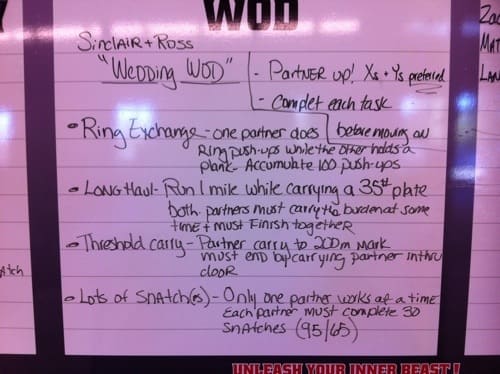 WOD
Sinclair + Ross
"Wedding WOD"
- Partner up! Xs + Ys preferred
- Complet each task
before moving on
• Ring Exchange - one partner does
Ring push-ups while the other holds a
plank - Accumulate 100 push-ups
• Long Haul - Run 1 mile while carrying a 35# plate
both partners must carry the burden at some
time + must Finish together
• Threshold carry - Partner carry to 200m mark
must end by carrying partner in thru
door
• Lots of Snatch(es) - Only one partner works at a time
Each partner must complete 30
snatches (95/65)
UNLEASH YOUR INNER BEAST!